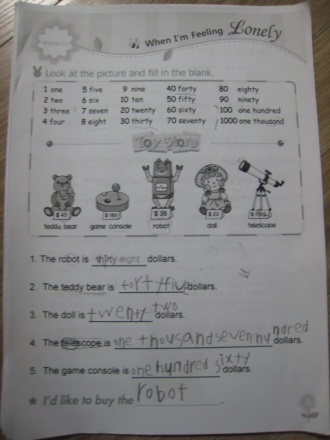 When I'm Feeling Lonely
Look at the picture and fill in the blank.
1 one 5 five 9 nine 40 forty 80 eighty
2 two 6 six 10 ten 50 fifty 90 ninety
3 three 7 seven 20 twenty 60 sixty 100 one hundred
4 four 8 eight 30 thirty 70 seventy 1000 one thousand
Toy
$ 45 $ 38
teddy bear game console robot doll telescope
1. The robot is thirty eight dollars.
2. The teddy bear is tortyfive dollars.
3. The doll is twenty two dollars.
4. The telescope is one thousand seven hundred dollars.
5. The game console is one hundred sixty dollars.
★ I'd like to buy the robot.